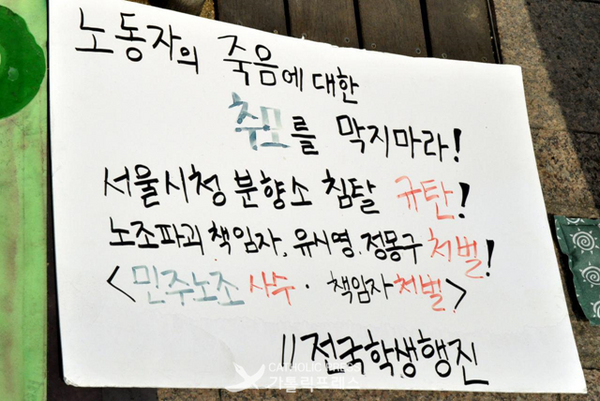 노동자의 죽음에 대한
추모를 막지마라!
서울시청 분향소 침탈 규탄!
노조파괴 책임자, 유시영. 정몽구 처벌!
<민주노조 사수 · 책임자 처벌>
//전국학생행진
CATHOLIC PRESS
가톨릭프레스